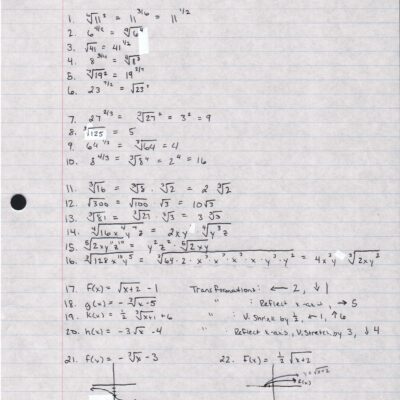 1. ⁶√11³ = 11^3/6 = 11^1/2
2. 6^4/2 = √6⁴
3. √41 = 41^1/2
4. 8^3/4 = ⁴√8³
5. ⁷√19² = 19^2/7
6. 23^1/2 = √23
7. 27^2/3 = ³√27² = 3² = 9
8. ³√125 = 5
9. 64^1/3 = ³√64 = 4
10. 8^4/3 = ³√8⁴ = 2⁴ = 16
11. ³√16 = ³√8 · ³√2 = 2 ³√2
12. √300 = √100 · √3 = 10√3
13. ³√81 = ³√27 · ³√3 = 3 ³√3
14. = 2xy
15. = y² z²
16. = 4x³y ³√2xy²
17. f(x) = √x+2 - 1 Transformations: ← 2, ↓ 1
18. g(x) = - ³√x-5 " : Reflect x-axis, → 5
19. k(x) = 1/2 ³√x+1 + 6 " : V. Shrink by 1/2, ← 1, ↑ 6
20. h(x) = -3√x - 4 " : Reflect x-axis, V. Stretch by 3, ↓ 4
21. f(x) = - ³√x - 3 22. f(x) = 1/2 √x+2
y = √x+2
f(x)